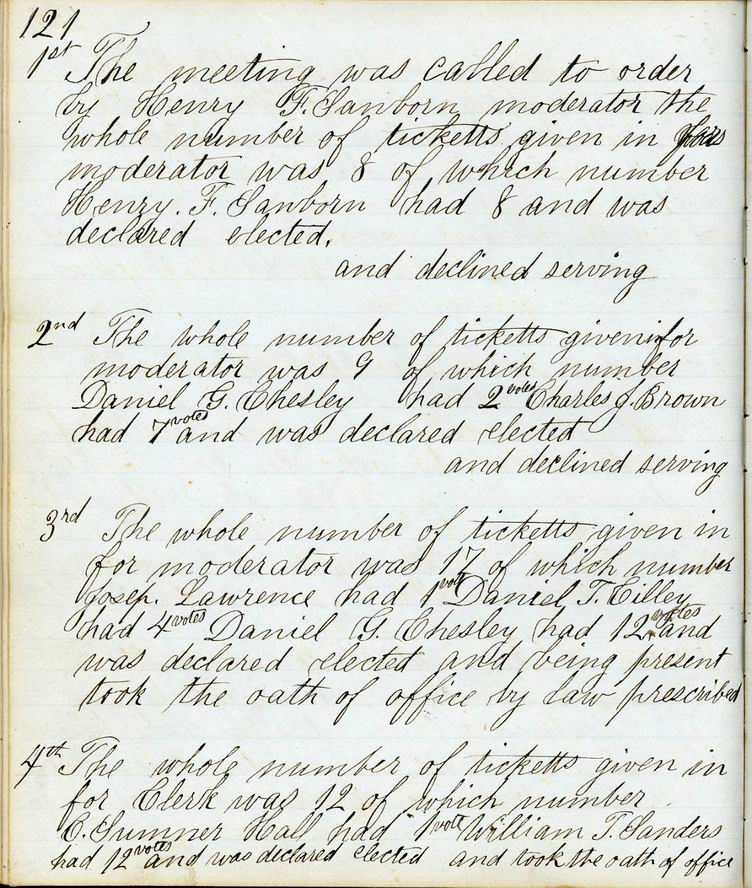 121
1st The meeting was called to order
by Henry F. Sanborn moderator the
whole number of ticketts given in for
moderator was 8 of which number
Henry. F. Sanborn had 8 and was
declared elected.
and declined serving
2nd The whole number of ticketts given in for
moderator was 9 of which number
Daniel G. Chesley had 2 votes Charles J. Brown
had 7 votes and was declared elected
and declined serving
3rd The whole number of ticketts given in
for moderator was 17 of which number
Joseph. Lawrence had 1 vote Daniel T. Cilley
had 4 votes Daniel G. Chesley had 12 votes and
was declared elected and being present
took the oath of office by law prescribed
4th The whole number of ticketts given in
for Clerk was 12 of which number
E. Sumner Hall had 1 vote William T. Sanders
had 12 votes and was declared elected and took the oath of office